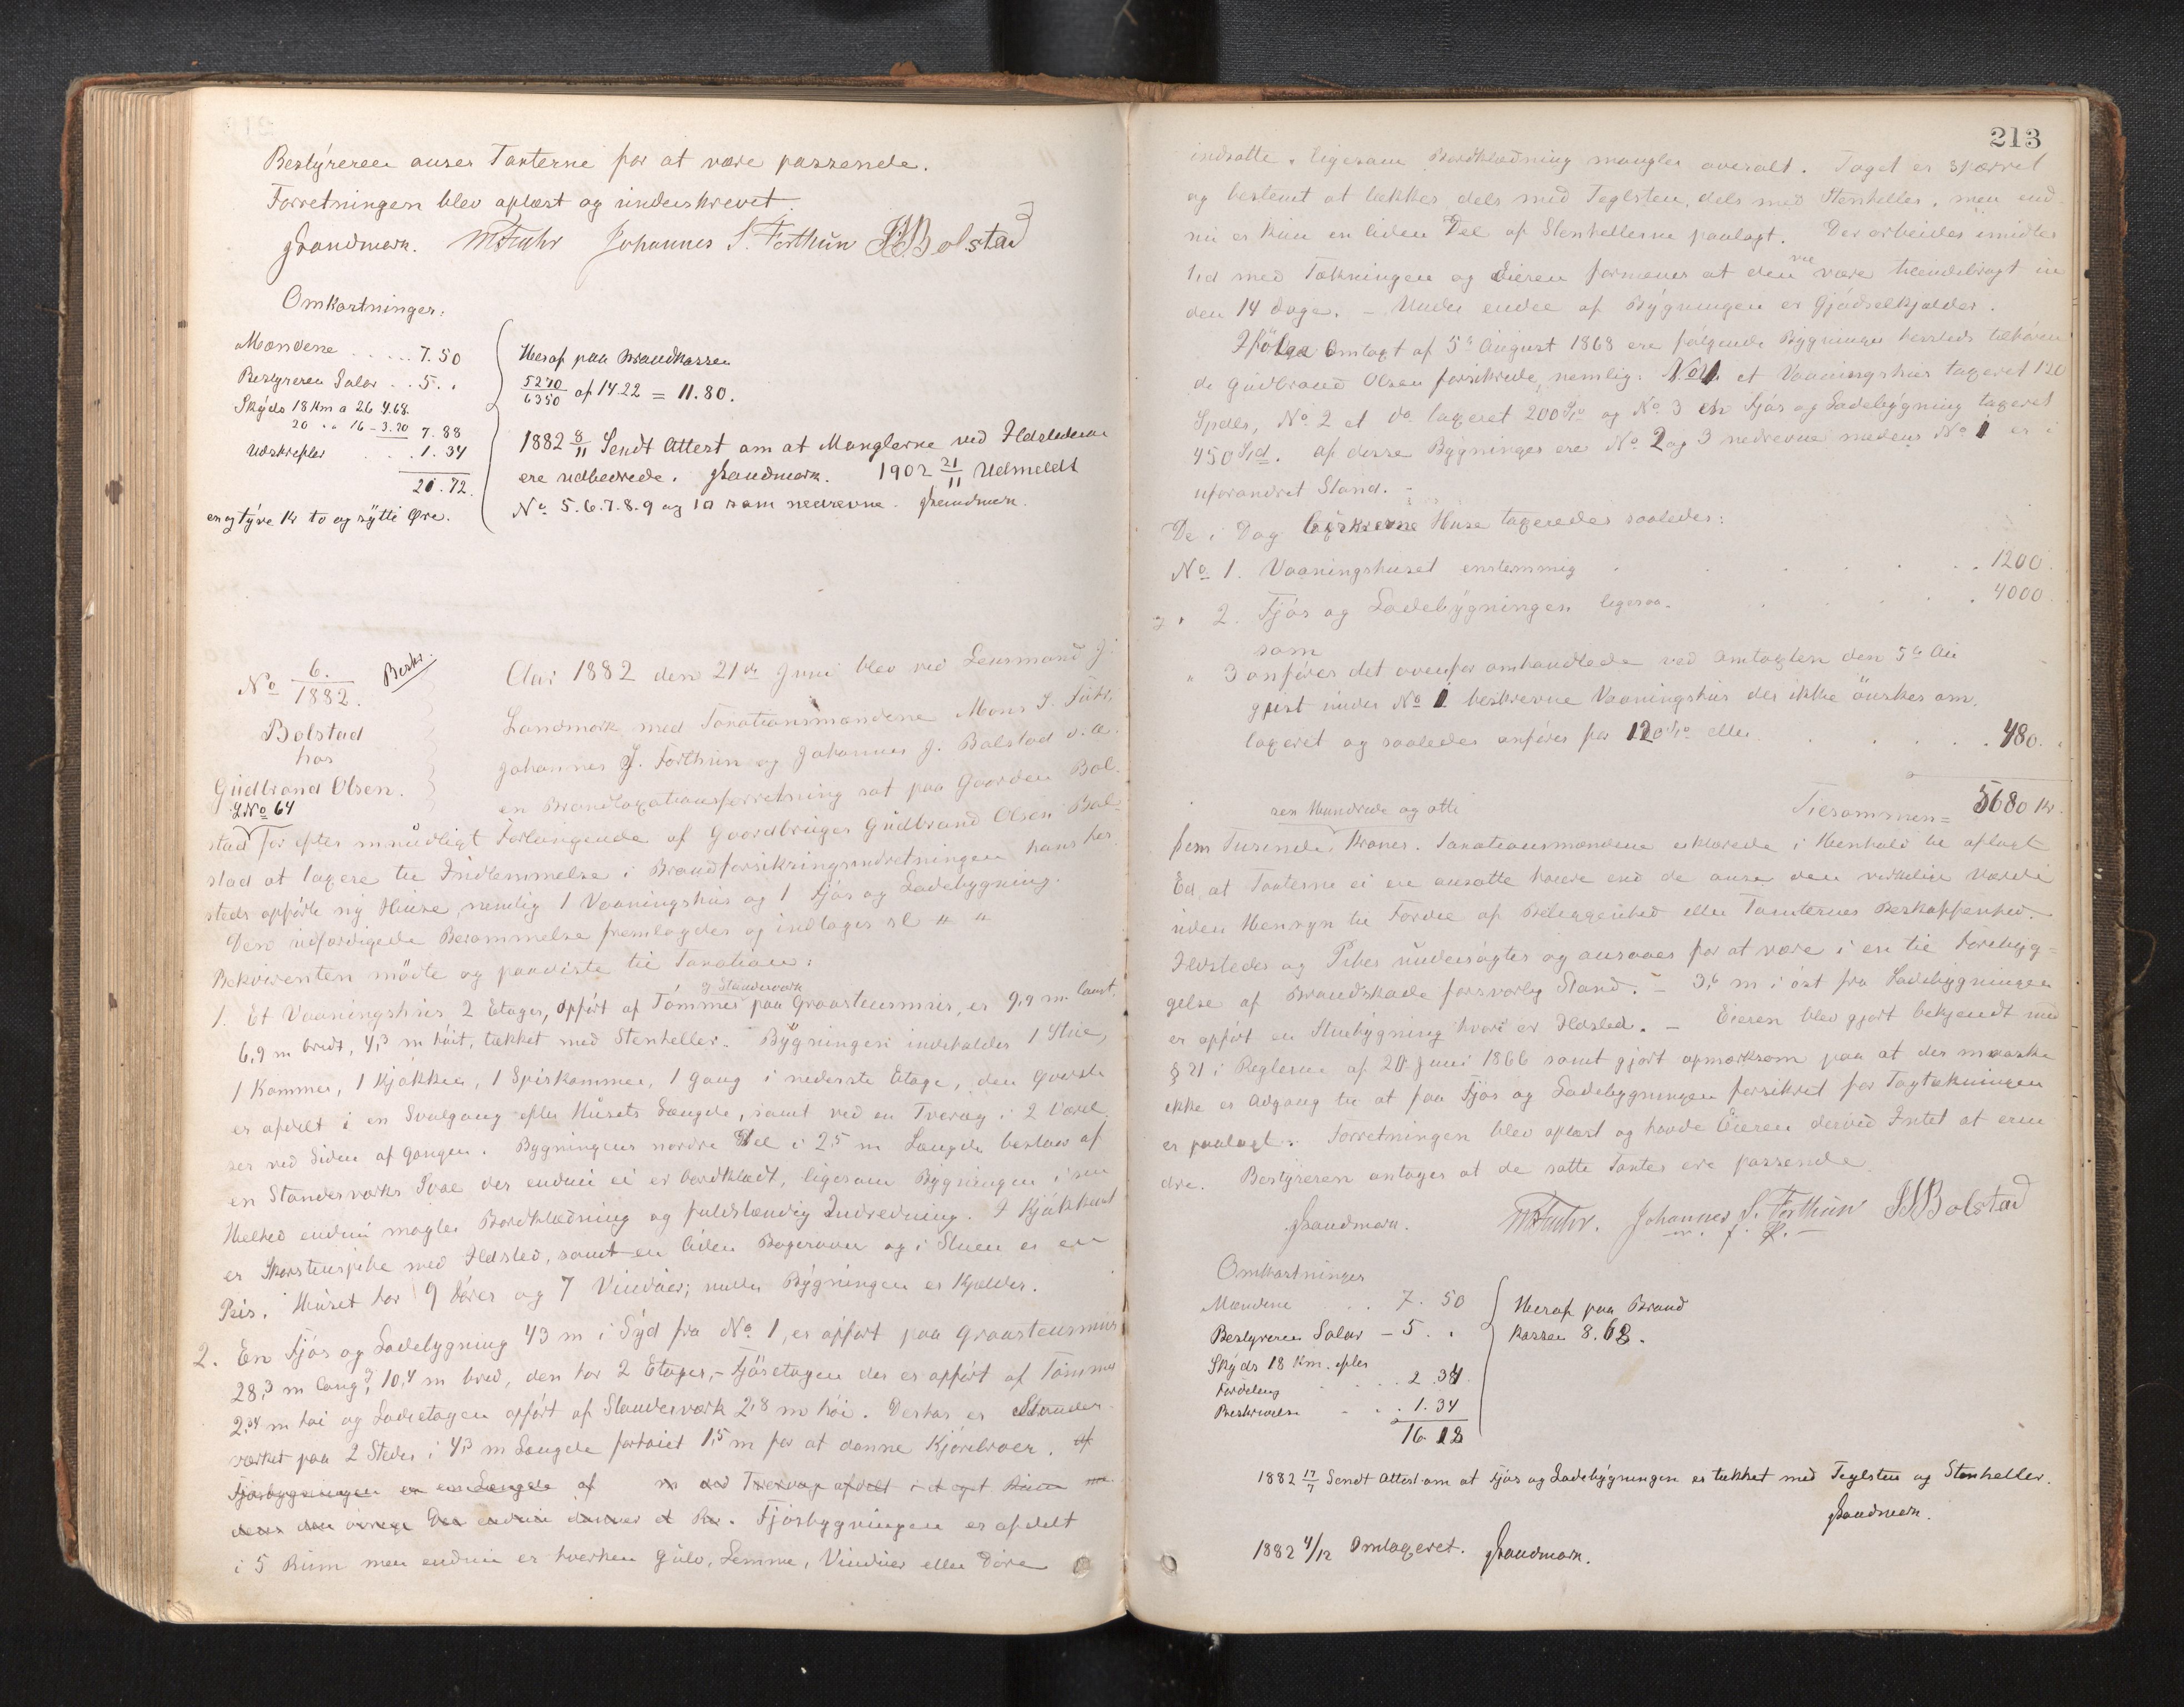 Bestÿreren anser Taxterne for at være passende.
Forretningen blev oplæst og underskrevet.
JLandmark. MTFuhr Johannes S. Forthun JJBolstad
Omkostninger:
Mændene . . . . . 7.50
Bestyreren Salar . . 5. .
Skÿds 18 Km a 26 4.68.
20 . . 16 - 3.20 7.88
Udskrifter . . . 1.34
21.72.
en og tyve Kr to og sÿtti Øre.
Heraf paa Brandkassen
5270/6350 af 14.22 = 11.80.
1882 8/11 Sendt Attest om at Manglerne ved Ildstederne
ere udbedrede. JLandmark. 1902 21/11 Udmeldt
No 5.6.7.8.9 og 10 som nedrevne. JLandmark.
No 6./1882. Beskr.
Bolstad
hos
Gudbrand Olsen.
LNo 64
Aar 1882 den 21de Juni blev ved Lensmand J.
Landmark med Taxationsmændene Mons T. Fuhr,
Johannes S. Forthun og Johannes J. Bolstad o. a.
en Brandtaxationsforretning sat paa Gaarden Bol-
stad for efter mundligt Forlangende af Gaardbruger Gudbrand Olsen Bol-
stad at taxere til Indlemmelse i Brandforsikringsindretningen hans her-
steds opførte nÿ Huse, nemlig 1 Vaaningshus og 1 Fjøs og Ladebygning.
Den udfærdigede Berammelse fremlagdes og indtages sl " "
Rekvirenten mödte og paaviste til Taxation:
1. Et Vaaningshus 2 Etager, opfört af Tømmer g. Standerværk paa Graasteensmur, er 9,9 m. langt,
6,9 m bredt, 4,3 m höit, tækket med Stenheller. Bÿgningen indeholder 1 Stue,
1 Kammer, 1 Kjøkken, 1 Spiskammer, 1 Gang i nederste Etage, den øverste
er afdelt i en Svalgang efter Husets Længde, samt ved en Tverræg i 2 Værel-
ser ved Siden af Gangen. Bygningens nordre Del i 2,5 m Længde bestaar af
en Standerværks Sval der endnu ei er bordklædt, ligesom Bygningen i sin
Helhed endnu mangler Bordklædning og fuldstændig Indredning. I Kjøkkenet
er Skorstenspibe med Ildsted, samt en liden Bagerovn og i Stuen er en
Peis. Huset har 9 Døre og 7 Vinduer; under Bÿgningen er Kjælder.
2. En Fjøs og Ladebygning 43 m i Sÿd fra No 1, er opført paa Graasteensmur
28,3 m lang, 10,4 m bred, den har 2 Etager, - Fjøsetagen der er opført af Tømmer
2,34 m høi og Ladeetagen opført af Standerværk 2,8 m høi. Derhos er Stander-
værket paa 2 Steder i 4,3 m Længde forhøiet 1,5 m for at danne Kjørebroer. Af
Fjøsbygningen er en Længde af m ved Tverræg afdelt i et eget Rum me-
dens den øvrige Del endnu danner et Rum. Fjøsbygningen er afdelt
i 5 Rum men endnu er hverken Gulv, Lemme, Vinduer eller Døre
213
indsatte, ligesom Bordklædning mangler overalt. Taget er spærret
og bestemt at tækkes dels med Teglsten, dels med Stenheller, men end-
nu er kun en liden Del af Stenhellerne paalagt. Der arbeides imidler-
tid med Tækningen og Eieren formener at den vil være tilendebragt in-
den 14 Dage. - Under endel af Bÿgningen er Gjødselkjælder.
Ifølge Omtaxt af 5te August 1868 ere følgende Bygninger hersteds tilhøren-
de Gudbrand Olsen forsikrede, nemlig: No 1 et Vaaningshus taxeret 120
Spdlr, No 2 et do taxeret 200 Spd og No 3 en Fjøs og Ladebÿgning taxeret
450 Spd. Af disse Bÿgninger ere No 2 og 3 nedrevne medens No 1 er i
uforandret Stand. -
De i Dag beskrevne Huse taxeredes saaledes:
No 1. Vaaningshuset enstemmig . . . . . . 1200.
" 2. Fjøs og Ladebÿgningen ligesaa . . . . . 4000.
" 3 som anføres det ovenfor omhandlede ved Omtaxten den 5te Au-
gust under No 1 beskrevne Vaaningshus der ikke önskes om-
taxeret og saaledes anføres for 120 Spd eller . . . . . 480. .
Tilsammen = 5680 Kr.
sex Hundrede og otti
fem Tusinde Kroner. Taxationsmændene erklærede i Henhold til aflagt
Ed, at Taxterne ei ere ansatte høiere end de anse den virkelige Værdi
uden Hensyn til Fordel af Beliggenhed eller Tomternes Beskaffenhed.
Ildsteder og Piber undersøgtes og ansaaes for at være i en til Forebyg=
gelse af Brandskade forsvarlig Stand. - 3,6 m i øst fra Ladebÿgningen
er opført en Stuebÿgning hvori er Ildsted. - Eieren blev gjort bekjendt med
§ 21 i Reglerne af 20 Juni 1866 samt gjort opmærksom paa at der maaske
ikke er Adgang til at faa Fjøs og Ladebygningen forsikret før Tagtækningen
er paalagt. Forretningen blev oplæst og havde Eieren derved Intet at erin-
dre. Bestÿreren antager at de satte Taxter ere passende.
JLandmark. MTFuhr. Johannes S. Forthun JJBolstad
m. f. P. -
Omkostninger
Mændene . . 7. 50
Bestyreren Salar - 5. .
Skÿds 18 Km. efter
Fordeling . . . 2.34
Beskrivelse - . . 1.34
16.18
Heraf paa Brand
kassen 8.68.
1882 17/7 Sendt Attest om at Fjøs og Ladebÿgningen er tækket med Teglsten og Stenheller.
JLandmark.
1882 4/12 Omtaxeret. JLandmark.